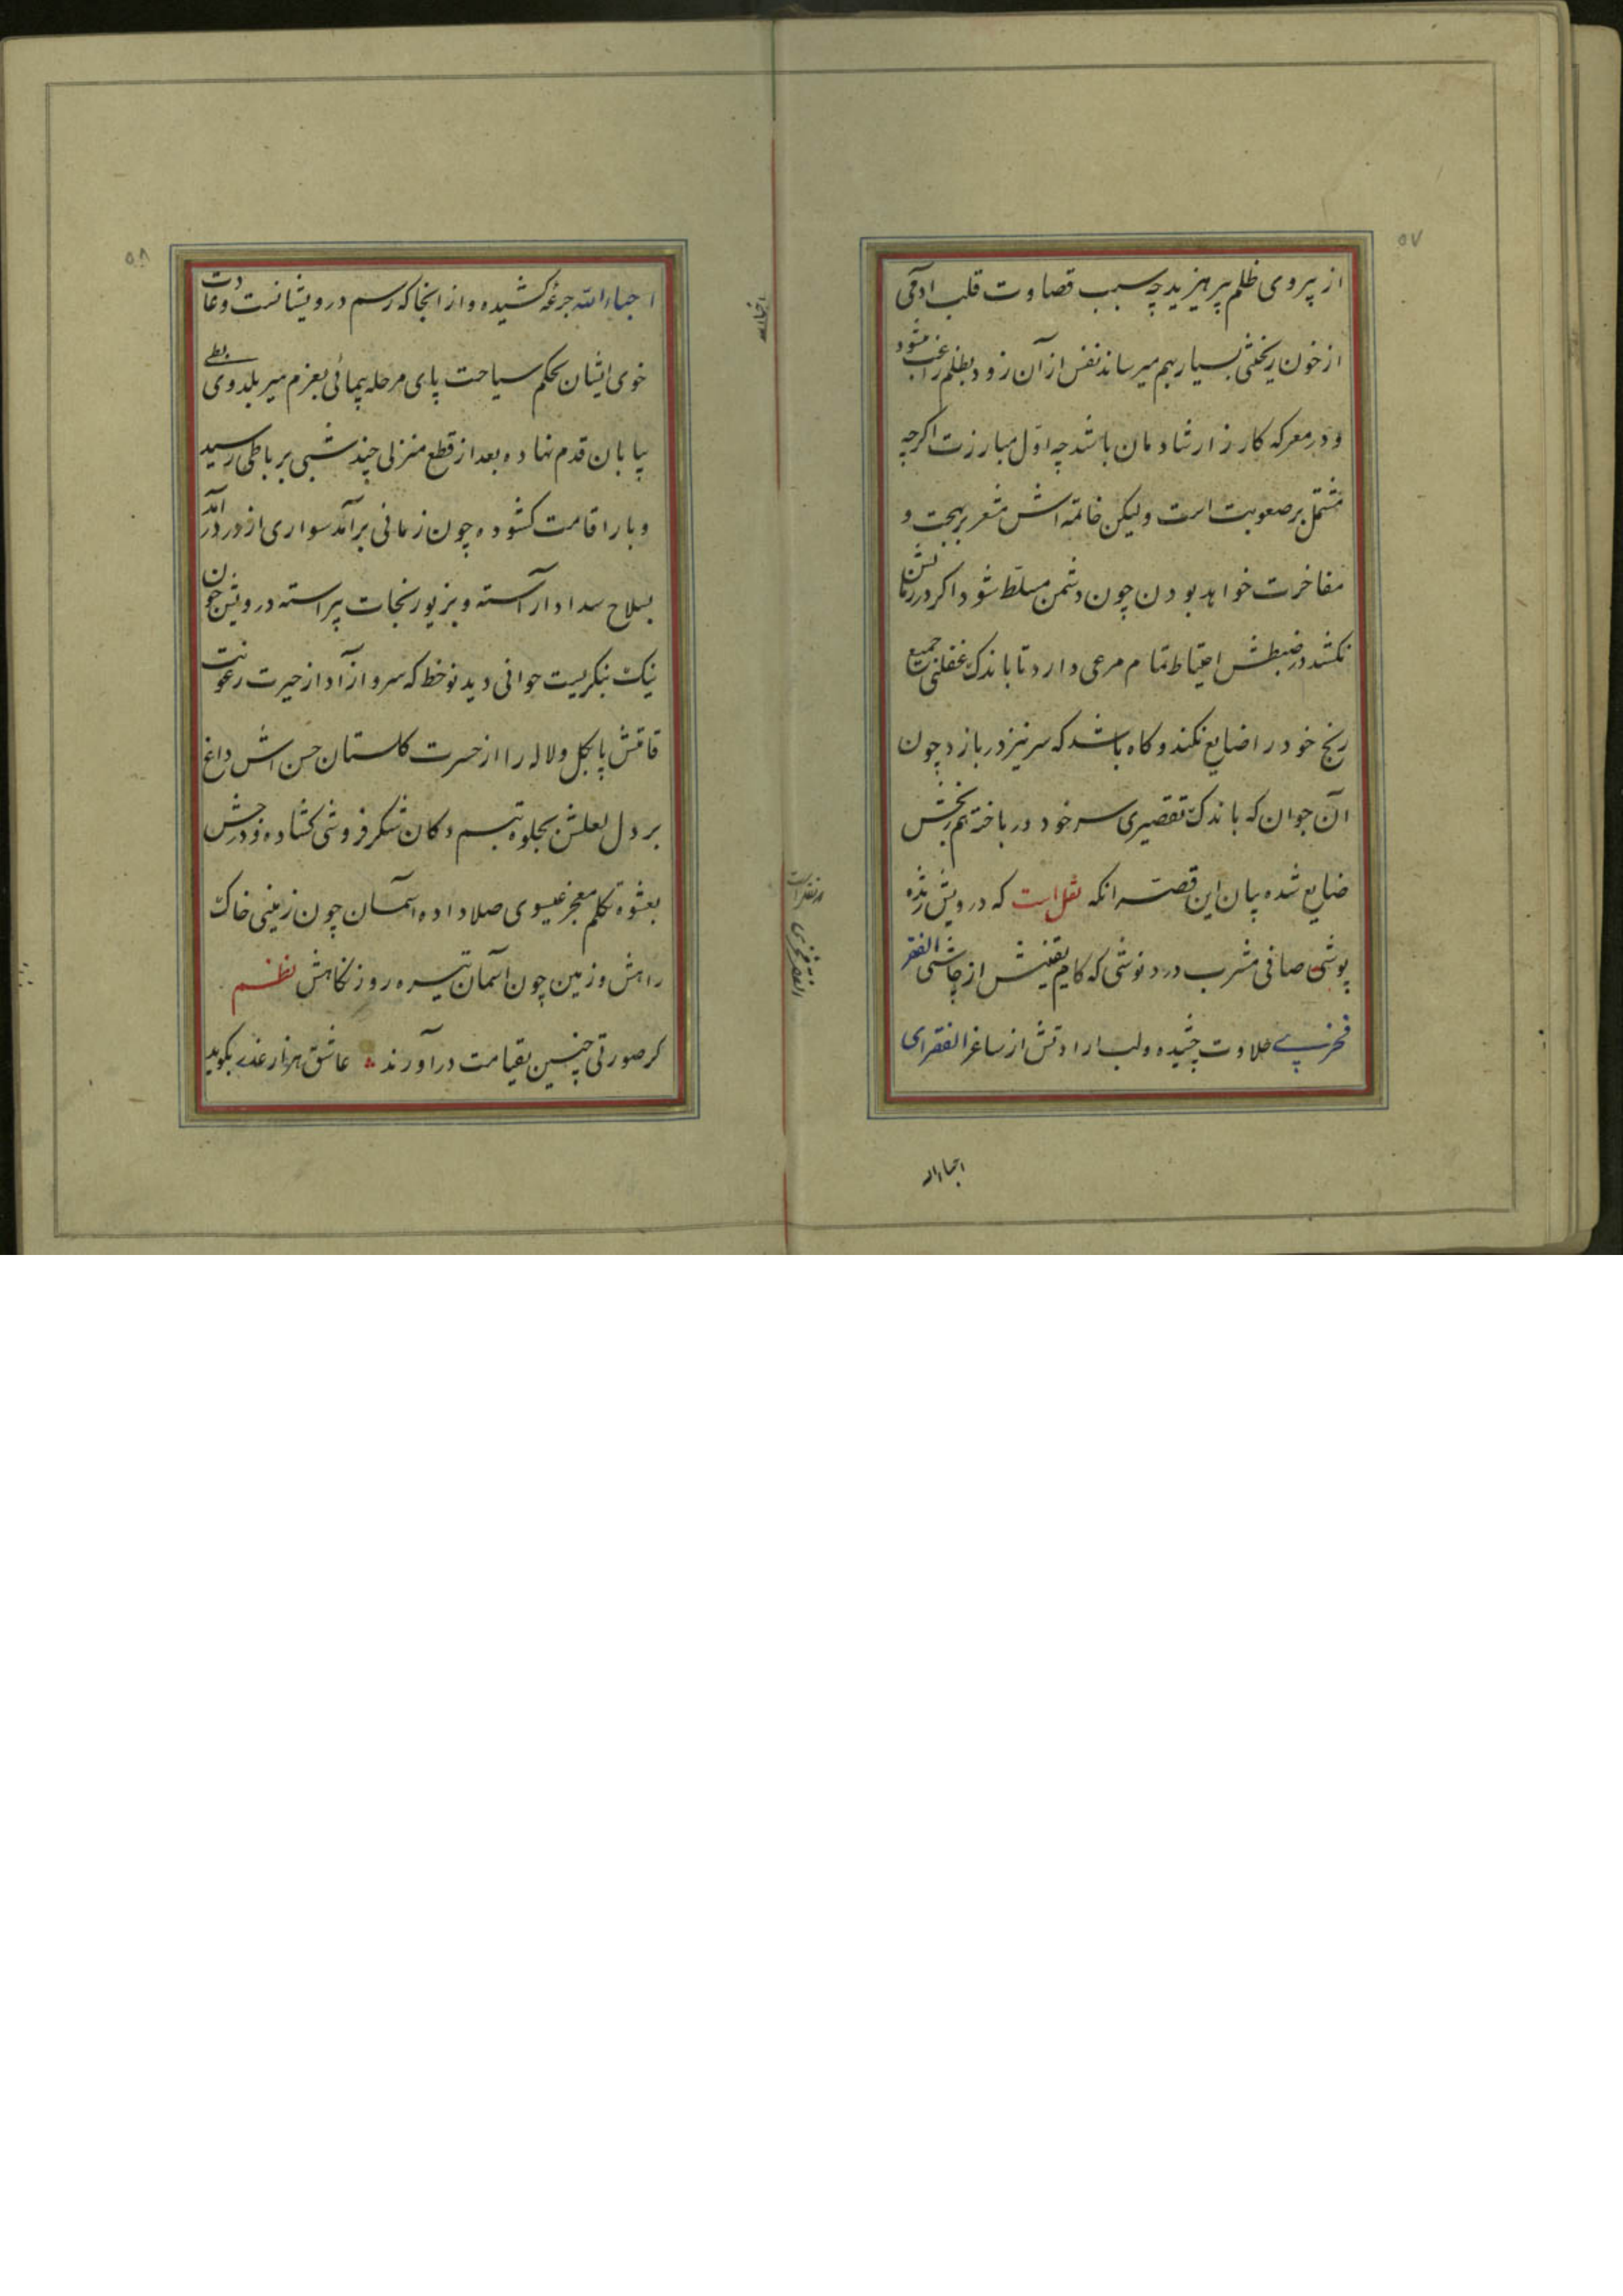 ۵۷
از پیروی ظلم پرهیزید چه سبب قصاوت قلب آدمی
از خون ریختن بسیار بهم میرساند نفس از آن زود بظلم راغب میشود
و در معرکه کارزار شادمان باشد چه اول مبارزت اگرچه
مشتمل بر صعوبت است ولیکن خاتمه اش مشعر بر بهجت و
مفاخرت خواهد بودن چون دشمن مسلط شود اکر در زمانش
نکشد در ضبطش احتیاط تمام مرعی دارد تا باندک غفلتی جمیع
رنج خود را ضایع نکند و کاه باشد که سر نیز در بازد چون
آن جوان که باندک تقصیری سر خود در باخته هم رنجش
ضایع شده بیان این قصه آنکه نقل است که درویش ژنده
پوشی صافی مشرب درد نوشی که کام یقینش از چاشنی الفقر
فخری حلاوت چشیده و لب ارادتش از ساغر الفقرای
احباءالله
الفقر فخری
۵۸
احباءالله جرعه کشیده و از آنجا که رسم درویشانست و عادت
خوی ایشان بحکم سیاحت پای مرحله پیمائی بعزم سیر بلدوی بطی
بیابان قدم نهاده بعد از قطع منزلی چند شبی بر باطی رسید
و بار اقامت کشوده چون زمانی برآمد سواری از در درآمد
بسلاح سداد آراسته و بزیور نجات پیراسته درویش چون
نیک بنکریست جوانی دید نوخط که سرو آزاد از حیرت رعونت
قامتش پا بکل و لاله را از حسرت کلستان حسن اش داغ
بر دل لعلش بجلوه تبسم دکان شکر فروشی کشاده و درجش
بعشوه تکلم معجز عیسوی صلا داده آسمان چون زمینی خاک
راهش و زمین چون آسمان تیره روز نکاهش نظم
کر صورتی چنین بقیامت در آورند عاشق هزار عذر بکوید